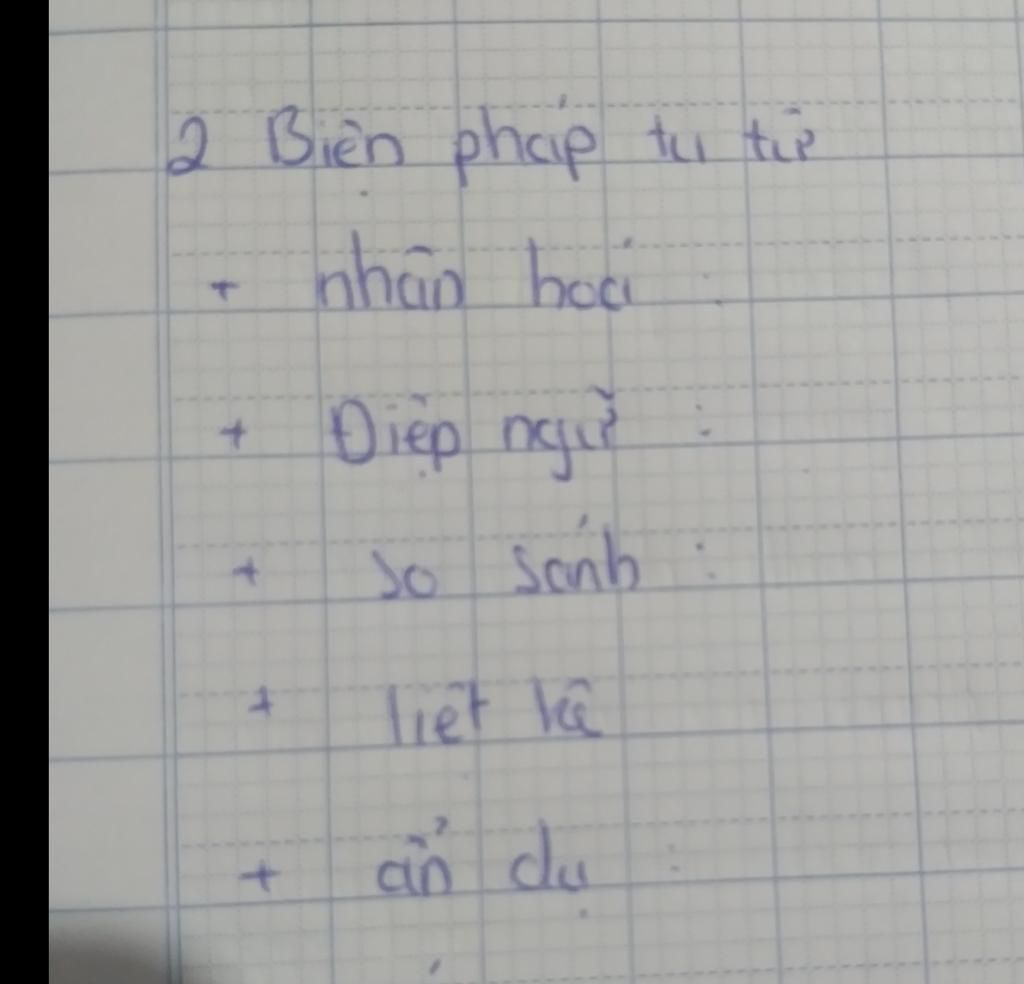 2 Biện pháp tu từ
+ nhân hoá :
+ Điệp ngữ :
+ so sánh :
+ liệt kê
+ ẩn dụ :